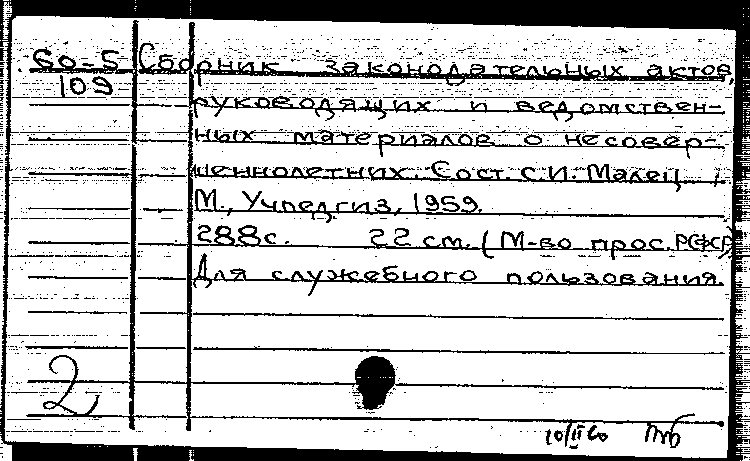 60-5 Сборник законодательных актов,
109 руководящих и ведомствен-
ных материалов о несовер-
шеннолетних. Сост. С.И. Малец.
М., Учпедгиз, 1959.
288 с. 22 см. (М-во прос. РСФСР)
Для служебного пользования.
2
10/II 60